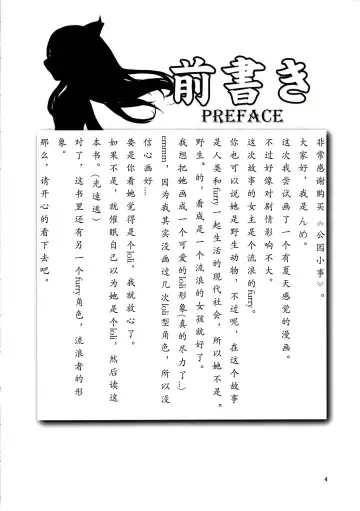 前書き
PREFACE
非常感谢购买《公园小事》。
大家好，我是んめ。
这次我尝试画了一个有夏天感觉的漫画。
不过好像对剧情影响不大。
这次故事的女主是个流浪的furry。
你也可以说她是野生动物，不过呢，在这个故事
是人类和furry一起生活的现代社会，所以她不是“
野生”的。看成是一个流浪的女孩就好了。
我想把她画成一个可爱的loli形象(真的尽力了…)
emmm，因为我其实没画过几次loli型角色，所以没
信心画好…
要是你看她觉得是个loli，我就放心了。
如果不是，就催眠自己以为她是个loli，然后读这
本书。（光速逃）
对了，这书里还有另一个furry角色，流浪者的形
象。
那么，请开心的看下去吧。
4